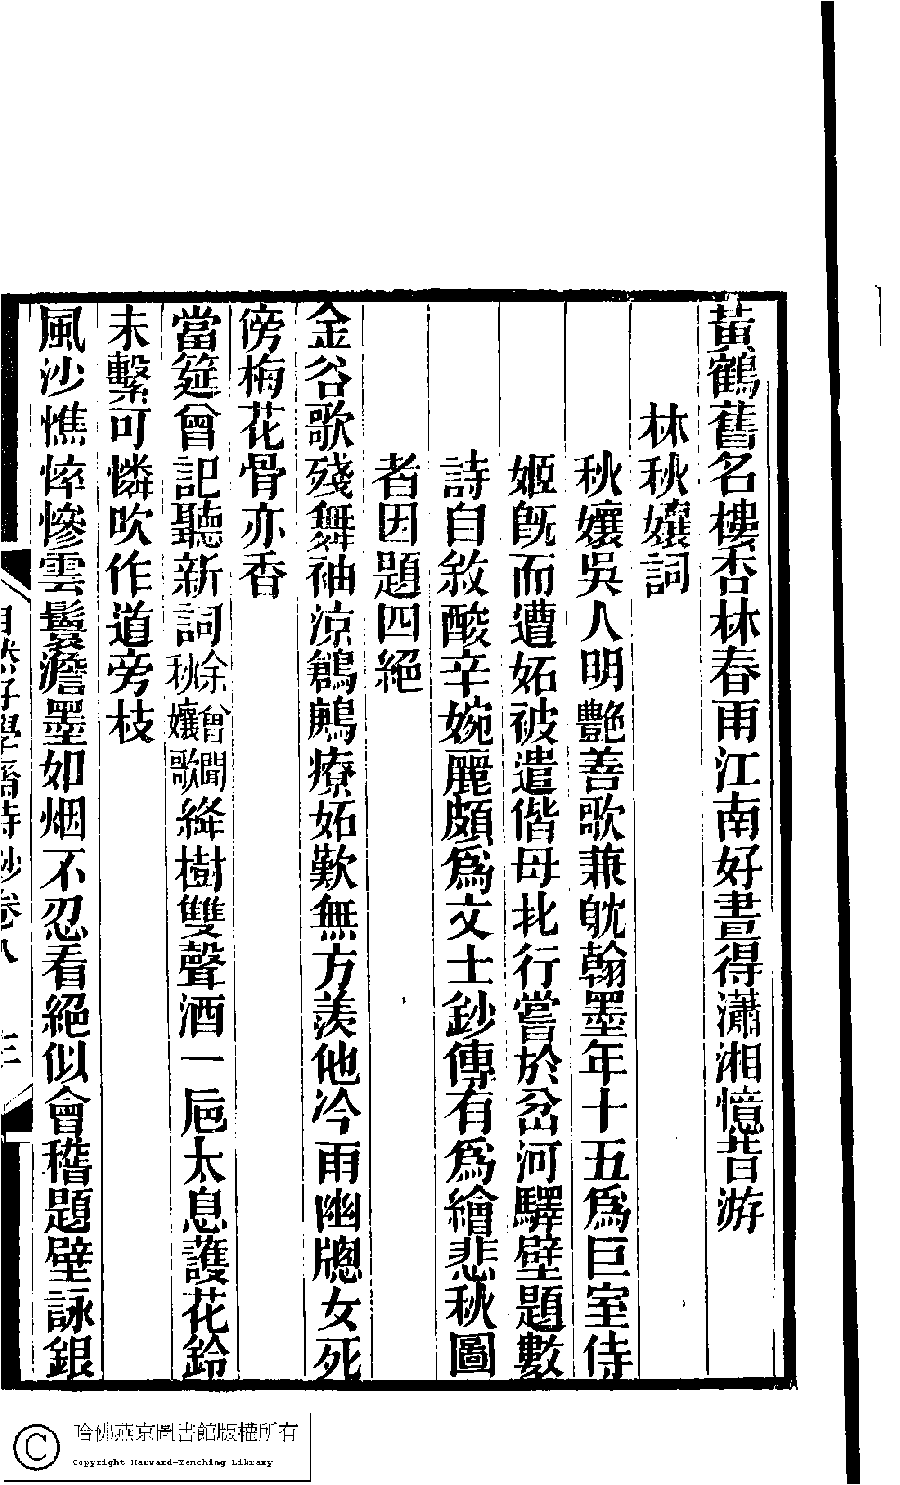 黃鶴舊名樓杏林春雨江南好畫得瀟湘憶昔游
林秋孃詞
秋孃吳人明艷善歌兼躭翰墨年十五爲巨室侍
姬旣而遭妬被遣偕母北行嘗於岔河驛壁題數
詩自敘酸辛婉麗頗爲文士鈔傳有爲繪悲秋圖
者因題四絕
金谷歌殘舞袖涼鶬鶊療妬歎無方羨他冷雨幽牕女死
傍梅花骨亦香
當筵曾記聽新詞余曾聞秋孃歌絳樹雙聲酒一巵太息護花鈴
未繫可憐吹作道旁枝
風沙憔悴慘雲鬟澹墨如烟不忍看絕似會稽題壁詠銀
自然好學齋詩鈔卷八
哈佛燕京圖書館版權所有
Copyright Harvard-Yenching Library